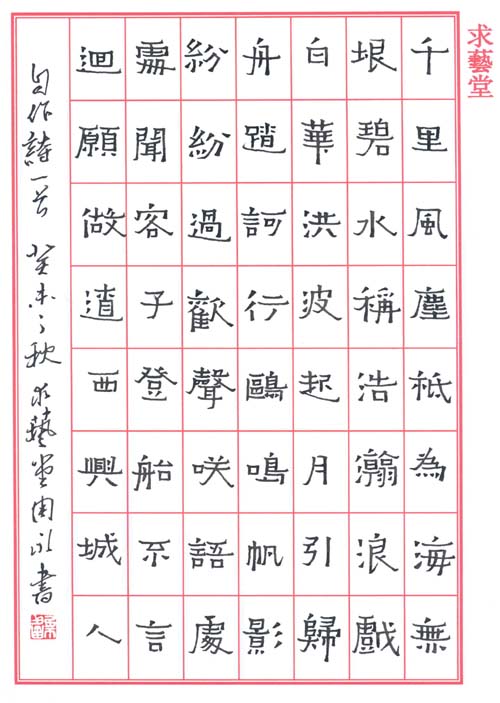 求藝堂
千里風塵秪為海無
垠碧水稱浩瀚浪戲
白華洪波起月引歸
舟訶行鷗鳴帆影
紛紛過歡聲咲語處
處聞客子登船不言
迴願做西興城人
自作詩一首 癸未之秋 求藝堂周永書